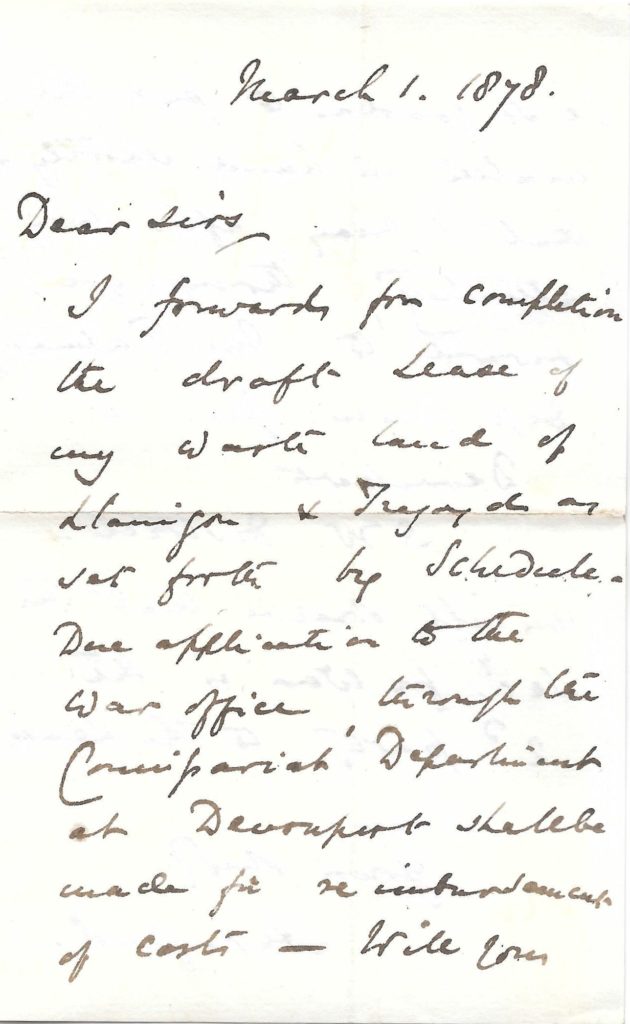 March 1. 1878.
Dear Sirs
I forwards for completion
the draft Lease of
my waste land of
Llanigon & Tregoyd as
set forth by Schedule.
Due application to the
War Office, through the
Commissariat Department
at Devonport shall be
made for reimbursement
of costs — Will you